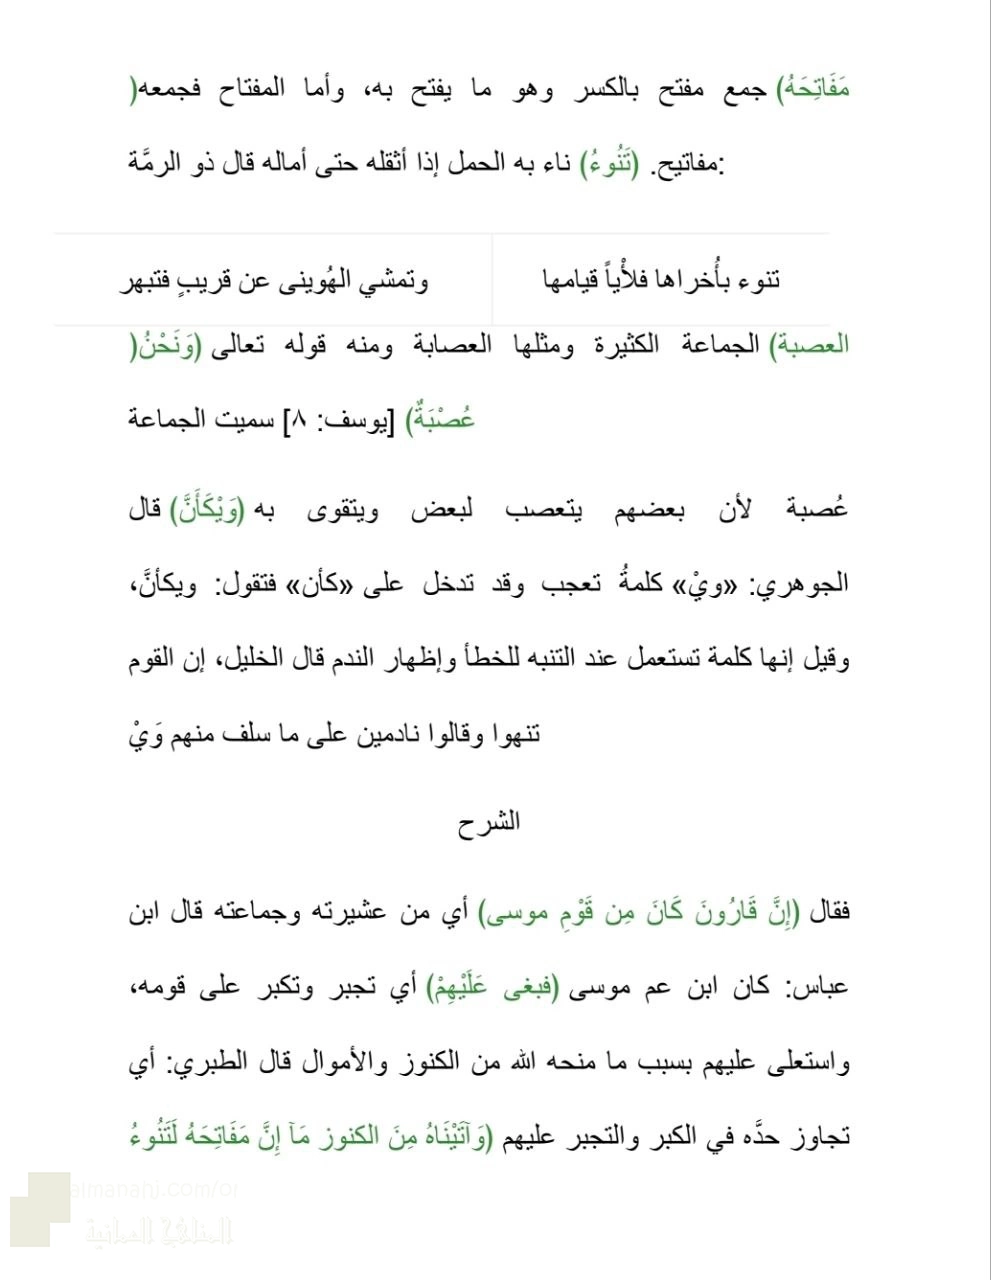 مَفَاتِحَهُ) جمع مفتح بالكسر وهو ما يفتح به، وأما المفتاح فجمعه(
:مفاتيح. (تَنُوءُ) ناء به الحمل إذا أثقله حتى أماله قال ذو الرمَّة
تنوء بأُخراها فلأْياً قيامها وتمشي الهُوينى عن قريبٍ فتبهر
العصبة) الجماعة الكثيرة ومثلها العصابة ومنه قوله تعالى (وَنَحْنُ(
عُصْبَةٌ) [يوسف: ٨] سميت الجماعة
عُصبة لأن بعضهم يتعصب لبعض ويتقوى به (وَيْكَأَنَّ) قال
الجوهري: «ويْ» كلمةُ تعجب وقد تدخل على «كأن» فتقول: ويكأنَّ،
وقيل إنها كلمة تستعمل عند التنبه للخطأ وإظهار الندم قال الخليل، إن القوم
تنهوا وقالوا نادمين على ما سلف منهم وَيْ
الشرح
فقال (إِنَّ قَارُونَ كَانَ مِن قَوْمِ موسى) أي من عشيرته وجماعته قال ابن
عباس: كان ابن عم موسى (فبغى عَلَيْهِمْ) أي تجبر وتكبر على قومه،
واستعلى عليهم بسبب ما منحه الله من الكنوز والأموال قال الطبري: أي
تجاوز حدَّه في الكبر والتجبر عليهم (وَآتَيْنَاهُ مِنَ الكنوز مَآ إِنَّ مَفَاتِحَهُ لَتَنُوءُ
almanahj.com/or
المناهج العمانية